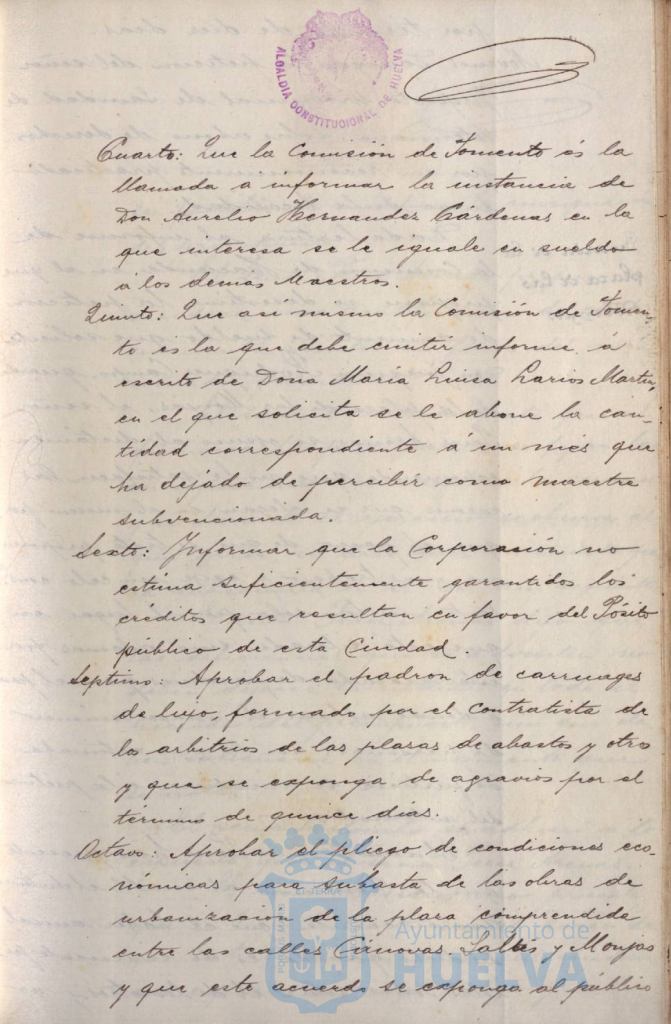 ALCALDIA CONSTITUCIONAL DE HUELVA
Cuarto: Que la Comisión de Fomento es la
llamada a informar la instancia de
Don Aurelio Hernandez Cárdenas en la
que interesa se le iguale en sueldo
á los demás Maestros.
Quinto: Que así mismo la Comisión de Fomen-
to es la que debe emitir informe á
escrito de Doña María Luisa Larios Martin,
en el que solicita se le abone la can-
tidad correspondiente á un mes que
ha dejado de percibir como maestra
subvencionada.
Sexto: Informar que la Corporasión no
estima suficientemente garantidos los
créditos que resultan en favor del Pósito
público de esta Ciudad.
Septimo: Aprobar el padron de carruages
de lujo, formado por el contratista de
los arbitrios de las plasas de abastos y otros
y que se exponga de agravios por el
término de quince días.
Octavo: Aprobar el pliego de condiciones eco-
nómicas para subasta de las obras de
urbanización de la plasa comprendida
entre las calles Cánovas, Saltés y Monjas
y que este acuerdo se exponga al público
Ayuntamiento de
HUELVA